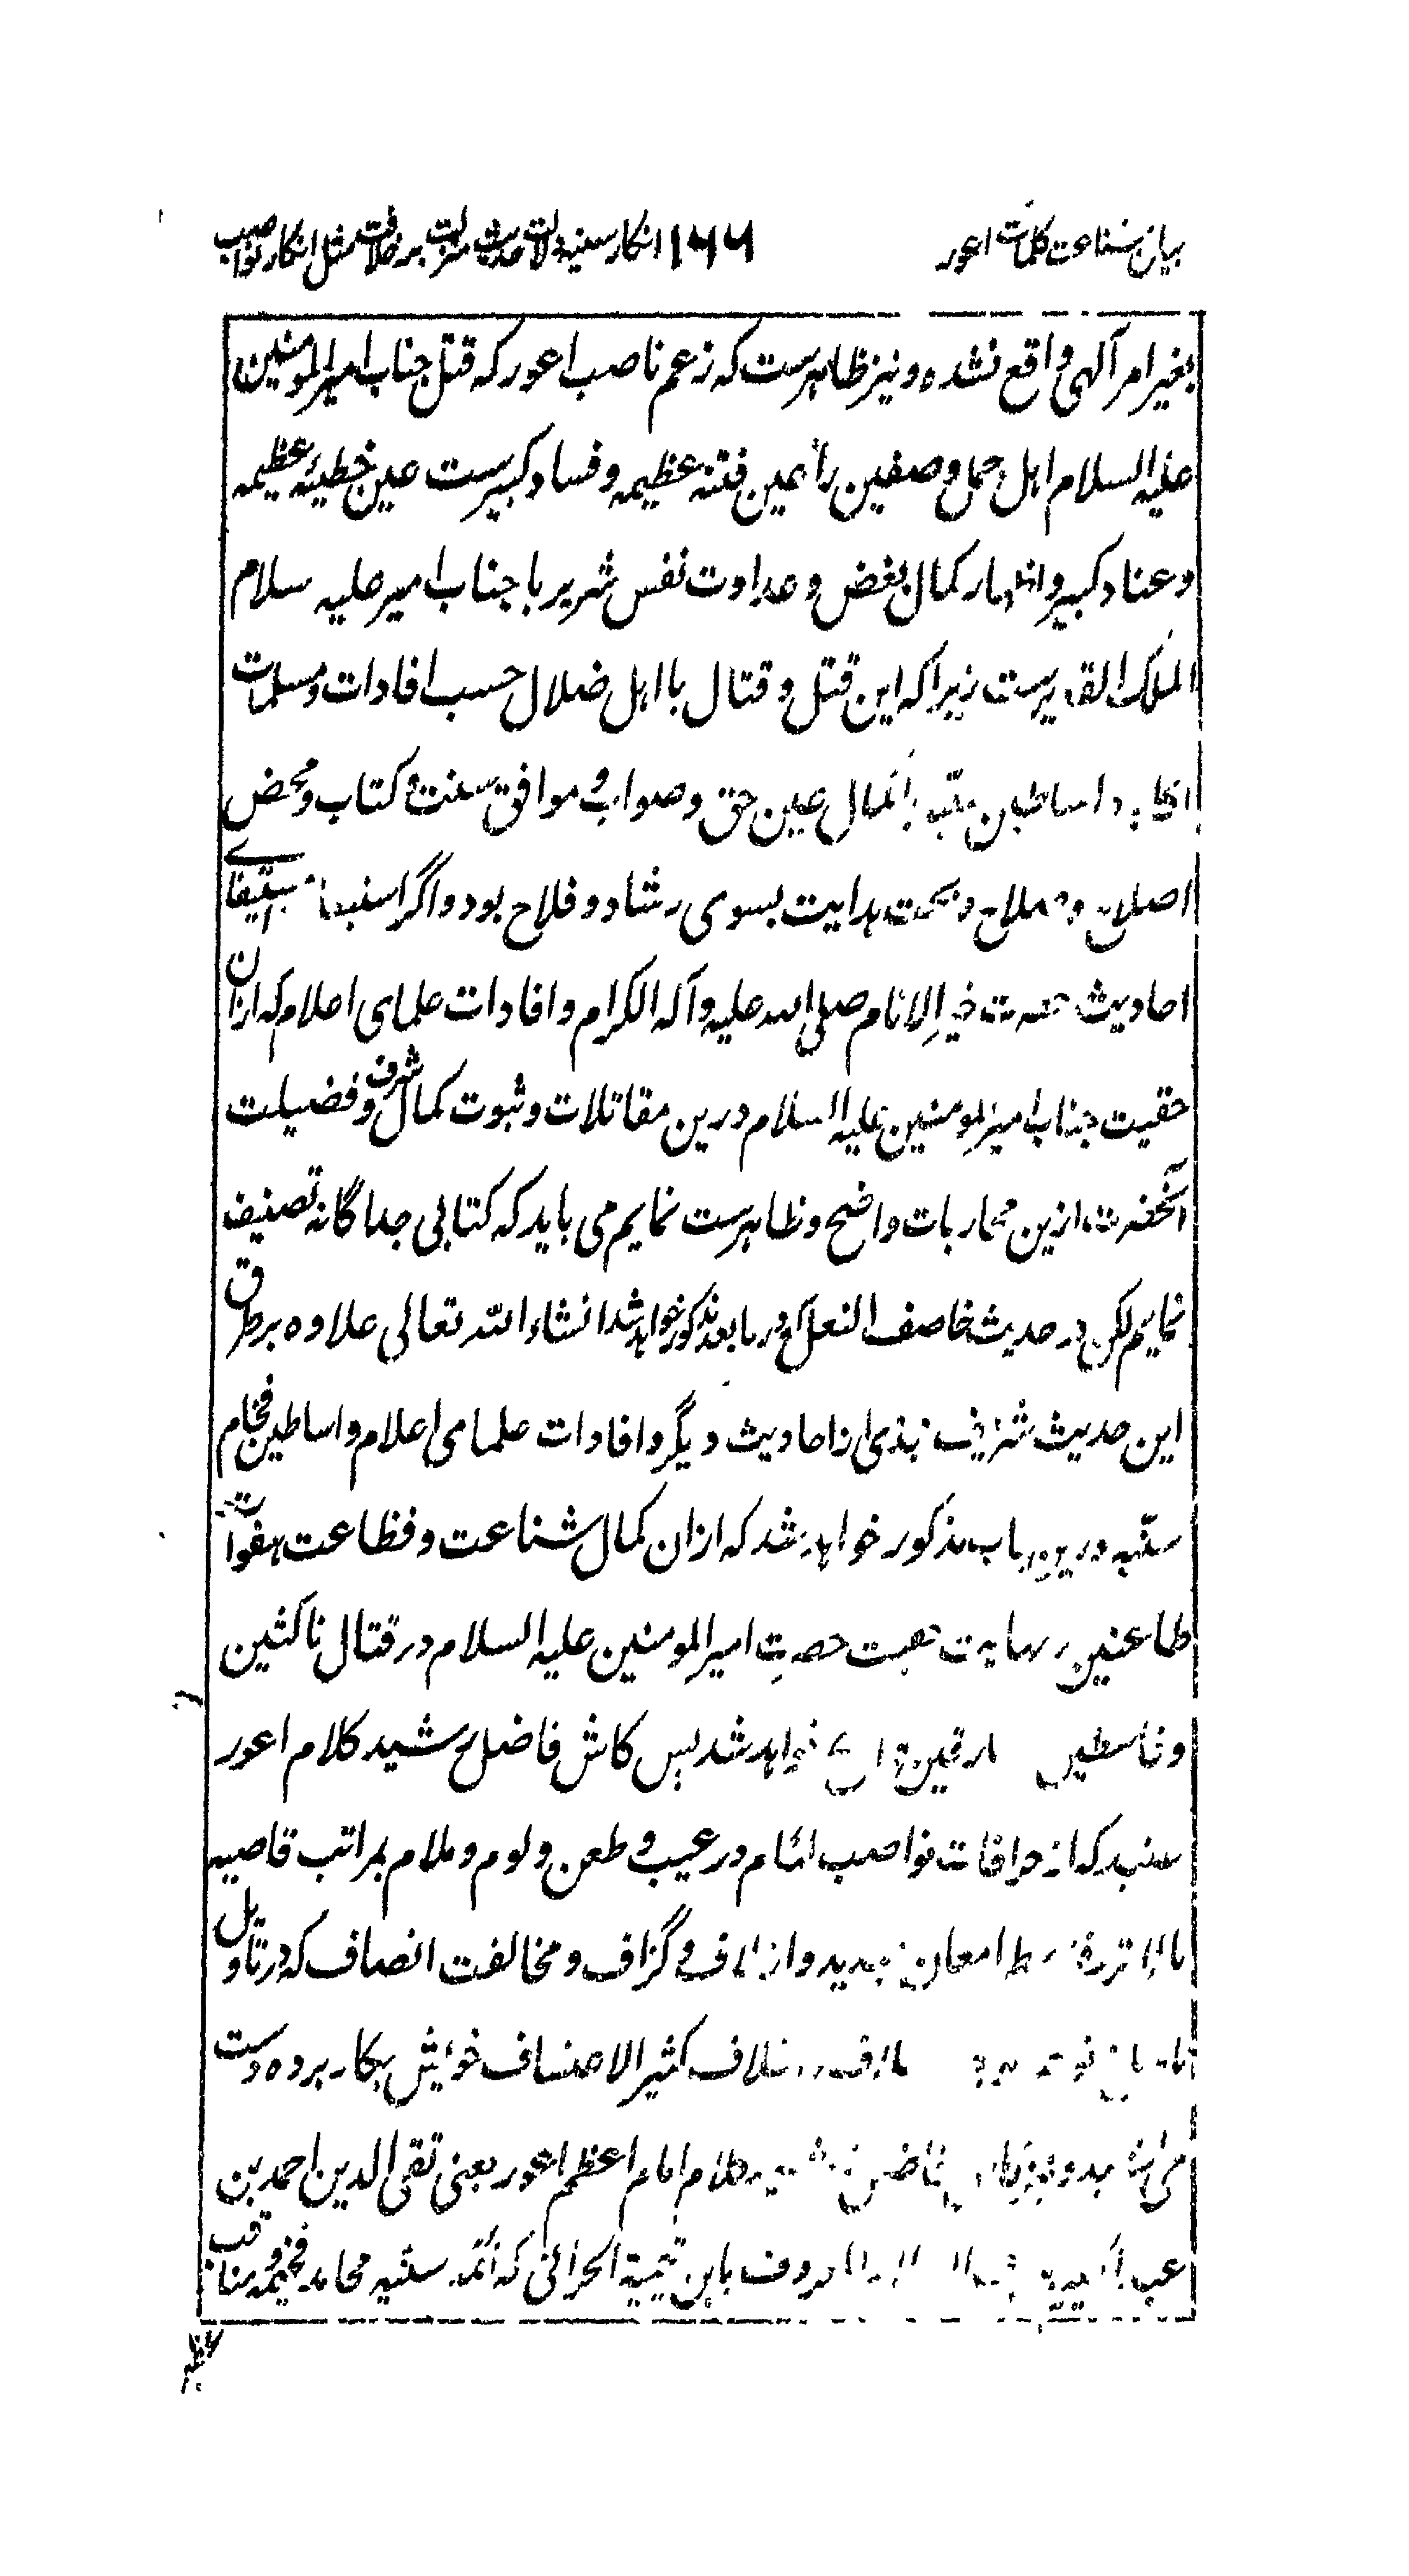 بیان شناعت کلمات اعور ۱۶۶ انکار سنیه دلالت حدیث منزلت بر خلافت مثل انکار نواصب
بغیر امر آلهی واقع نشده و نیز ظاهرست که زعم ناصب اعور که قتل جناب امیرالمومنین
علیه السلام اهل جمل و صفین را عین فتنه عظیمه و فساد کبیرست عین خطیئه عظیمه
و عناد کبیر و اظهار کمال بغض و عداوت نفس شریر با جناب امیر علیه سلام
الملک القدیرست زیرا که این قتل و قتال با اهل ضلال حسب افادات و مسلمات
اکابر و اساطین سنیه عین حق و صواب و موافق سنت و کتاب و محض
اصلاح و صلاح و هدایت بسوی رشاد و فلاح بود و اگر استیفای
احادیث حضرت خیر الانام صلی الله علیه و آله الکرام و افادات علمای اعلام که ازان
حقیت جناب امیرالمومنین علیه السلام درین مقاتلات و ثبوت کمال شرف و فضیلت
آنحضرت ازین محاربات واضح و ظاهرست نمایم می باید که کتابی جداگانه تصنیف
نمایم لکن در حدیث خاصف النعل که در مابعد مذکور خواهد شد انشاء الله تعالی علاوه بر طرق
این حدیث شریف نبذی از احادیث دیگر و افادات علمای اعلام و اساطین فخام
سنیه درین باب مذکور خواهد شد که ازان کمال شناعت و فظاعت هفوات
طاعنین حضرت امیرالمومنین علیه السلام در قتال ناکثین
و قاسطین و مارقین خواهد شد پس کاش فاضل رشید کلام اعور
عنید که از خرافات نواصب لئام در عیب و طعن و لوم و ملام بمراتب قاصیه
بالاترست امعان میدید و از لاف و گزاف و مخالفت انصاف که در تاویل
اسلاف کثیر الاعتساف خویش بکار برده دست
کلام امام اعظم اعور یعنی تقی الدین احمد بن
عبد الحلیم المعروف بابن تیمیة الحرانی که ائمه سنیه محامد فخیمه و مناقب
عظیمه